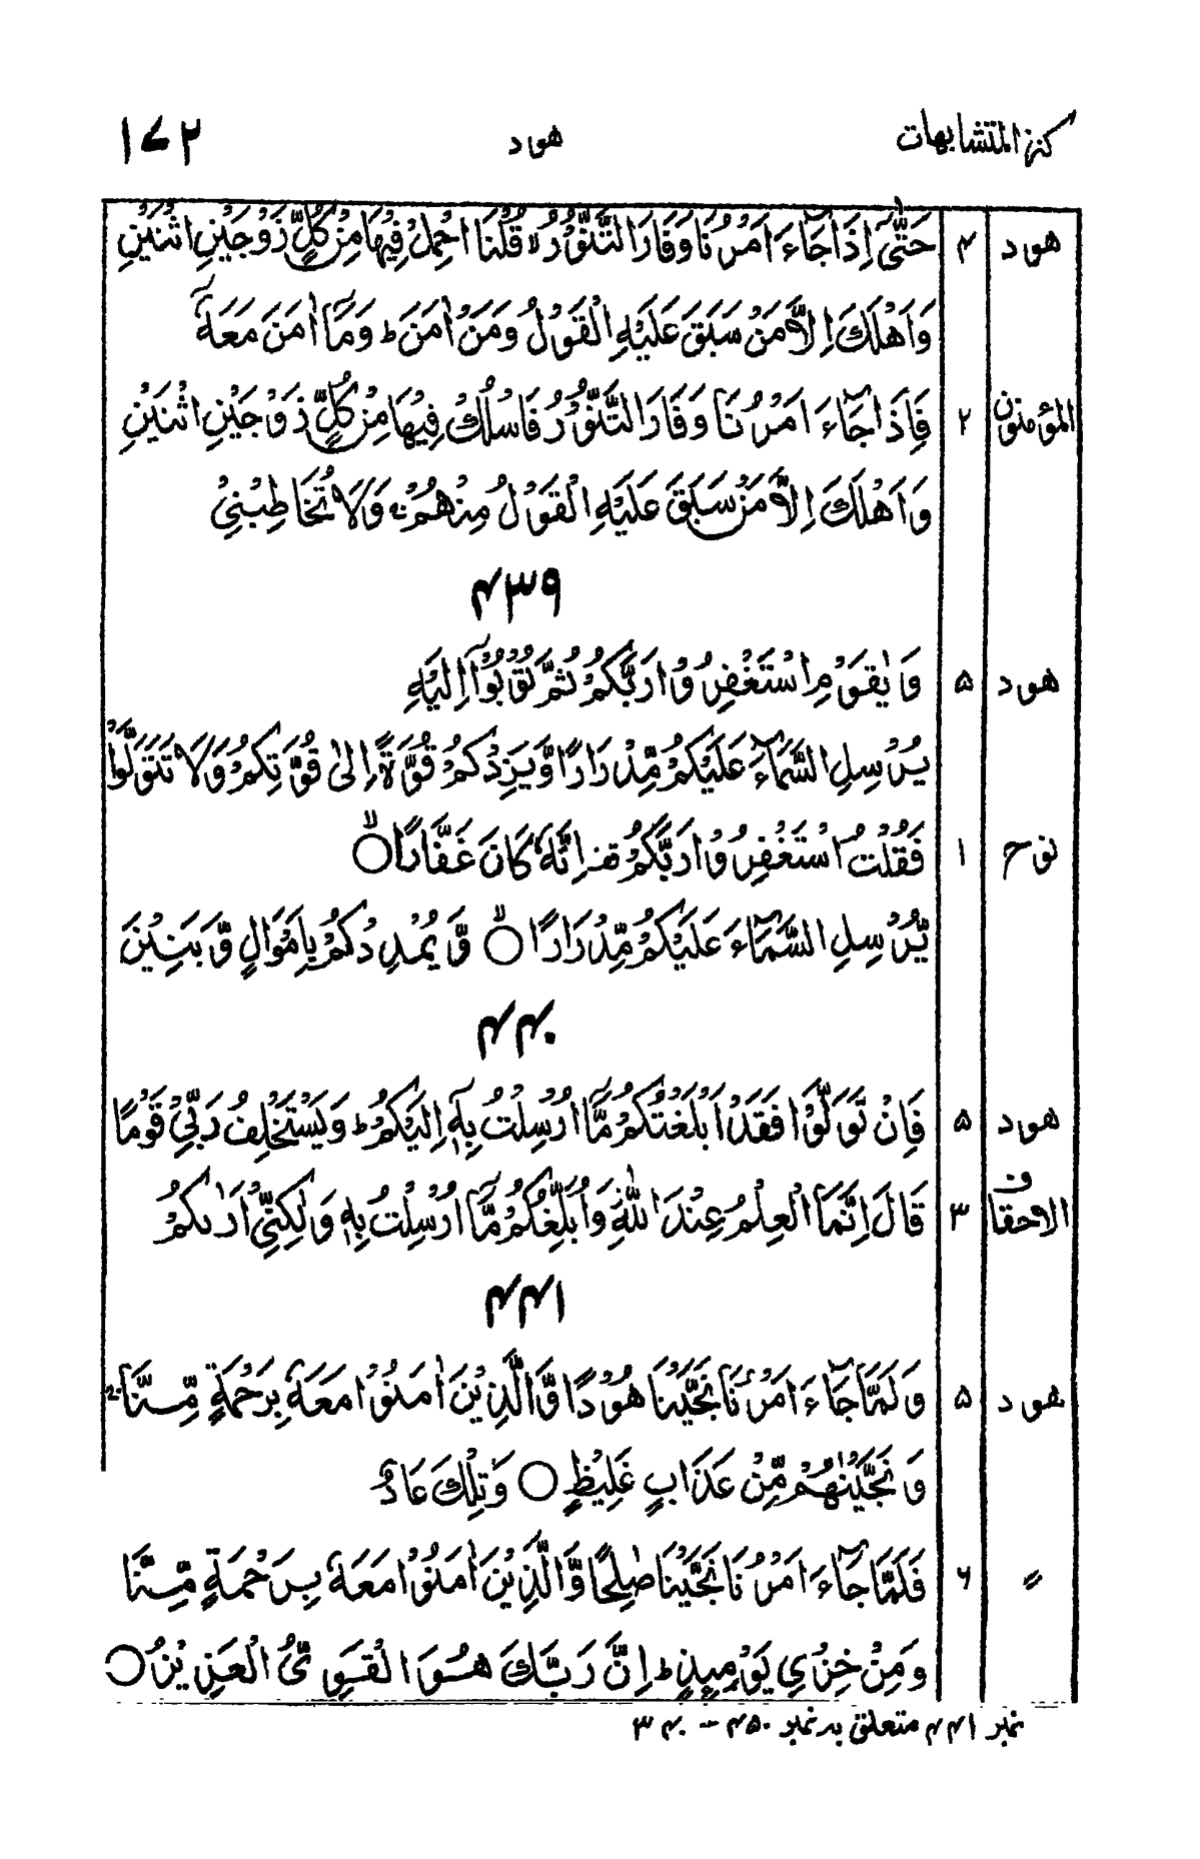 كنز المتشابهات هود ١٧٢
هود ۴ حَتّٰىٓ اِذَا جَآءَ اَمْرُنَا وَفَارَ التَّنُّوْرُ ۙ قُلْنَا احْمِلْ فِيْهَا مِنْ كُلٍّ زَوْجَيْنِ اثْنَيْنِ
وَاَهْلَكَ اِلَّا مَنْ سَبَقَ عَلَيْهِ الْقَوْلُ وَمَنْ اٰمَنَ ؕ وَمَآ اٰمَنَ مَعَهٗٓ
المؤمنون ٢ فَاِذَا جَآءَ اَمْرُنَا وَفَارَ التَّنُّوْرُ فَاسْلُكْ فِيْهَا مِنْ كُلٍّ زَوْجَيْنِ اثْنَيْنِ
وَاَهْلَكَ اِلَّا مَنْ سَبَقَ عَلَيْهِ الْقَوْلُ مِنْهُمْ ۚ وَلَا تُخَاطِبْنِيْ
۴٣٩
هود ۵ وَيٰقَوْمِ اسْتَغْفِرُوْا رَبَّكُمْ ثُمَّ تُوْبُوْٓا اِلَيْهِ
يُرْسِلِ السَّمَآءَ عَلَيْكُمْ مِّدْرَارًا وَّيَزِدْكُمْ قُوَّةً اِلٰى قُوَّتِكُمْ وَلَا تَتَوَلَّوْا
نوح ١ فَقُلْتُ اسْتَغْفِرُوْا رَبَّكُمْ ۫ اِنَّهٗ كَانَ غَفَّارًا ۙ○
يُّرْسِلِ السَّمَآءَ عَلَيْكُمْ مِّدْرَارًا ۙ○ وَّيُمْدِدْكُمْ بِاَمْوَالٍ وَّبَنِيْنَ
۴۴٠
هود ۵ فَاِنْ تَوَلَّوْا فَقَدْ اَبْلَغْتُكُمْ مَّآ اُرْسِلْتُ بِهٖٓ اِلَيْكُمْ ؕ وَيَسْتَخْلِفُ رَبِّيْ قَوْمًا
الاحقاف ٣ قَالَ اِنَّمَا الْعِلْمُ عِنْدَ اللّٰهِ وَاُبَلِّغُكُمْ مَّآ اُرْسِلْتُ بِهٖ وَلٰكِنِّيْٓ اَرٰىكُمْ
۴۴١
هود ۵ وَلَمَّا جَآءَ اَمْرُنَا نَجَّيْنَا هُوْدًا وَّالَّذِيْنَ اٰمَنُوْا مَعَهٗ بِرَحْمَةٍ مِّنَّا ۚ
وَنَجَّيْنٰهُمْ مِّنْ عَذَابٍ غَلِيْظٍ ○ وَتِلْكَ عَادٌ
〃 ۶ فَلَمَّا جَآءَ اَمْرُنَا نَجَّيْنَا صٰلِحًا وَّالَّذِيْنَ اٰمَنُوْا مَعَهٗ بِرَحْمَةٍ مِّنَّا
وَمِنْ خِزْيِ يَوْمِئِذٍ ؕ اِنَّ رَبَّكَ هُوَ الْقَوِيُّ الْعَزِيْزُ ○
نمبر ۴۴١ متعلق بہ نمبر ۴۵٠ - ٣۴٠